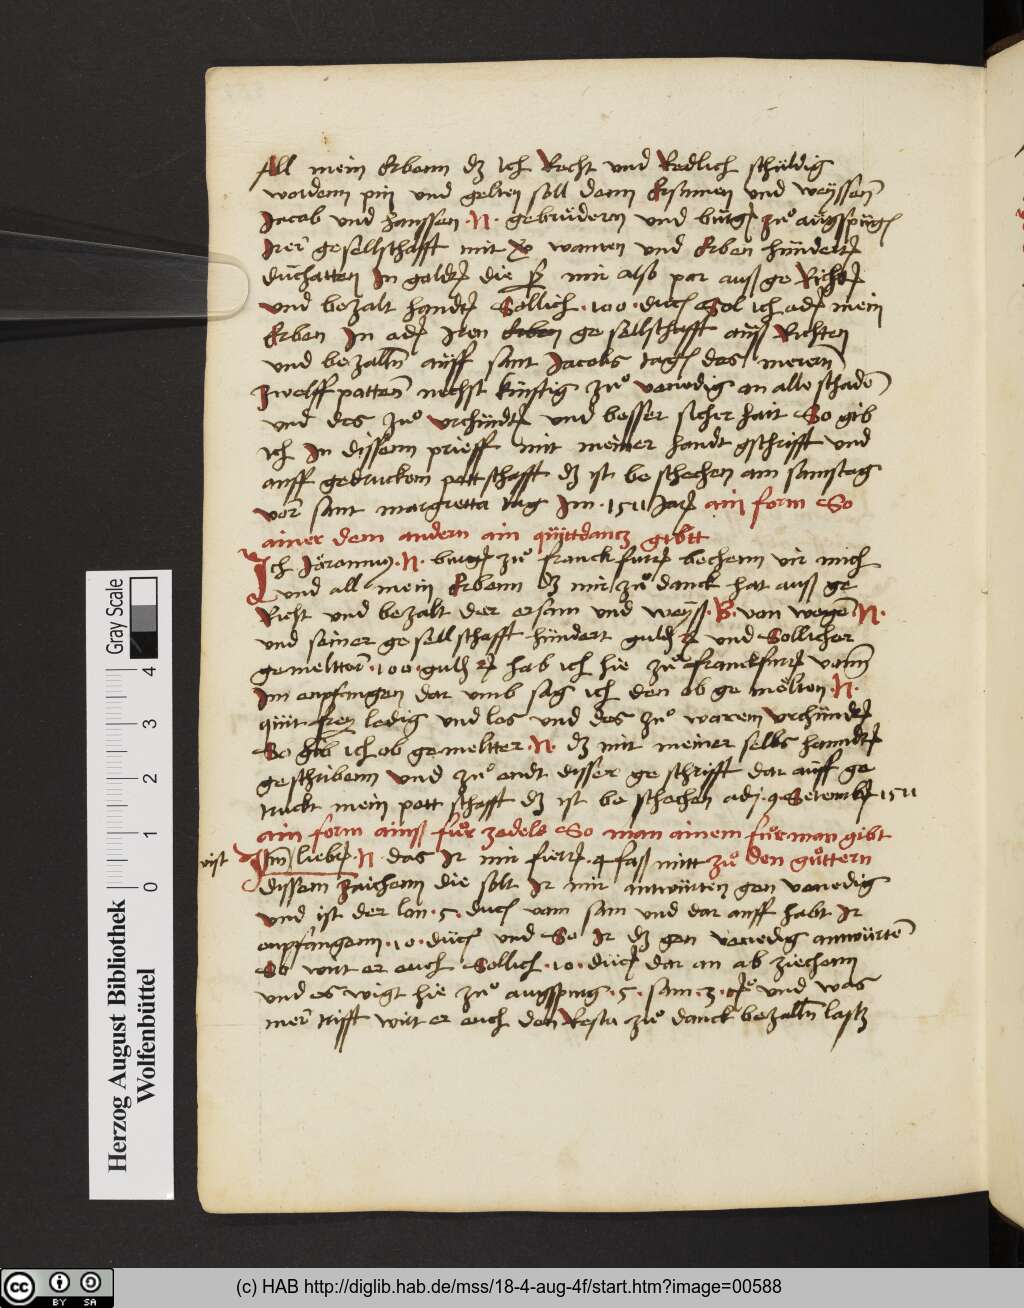 All mein Erbenn dz Ich Recht und Redlich schuldig
wordenn pin und gelten soll denn Ersamen und weyssen
Jacob und Hanssen .N. gebrüdern und burger zuo augspurg
Irer gesellschafft mit wamen und Erben hundertt
duchatten In gold die sy mir also par auss ge Richt
und bezalt handt Sollich .100. duc Sol ich oder mein
Erben In oder Iren gesellschafft auss Richten
und bezalln auff sant Jacobs tag des merern
zwelff potten nechst künftig zuo venedig on alle schaden
und des zuo urchundt und besser sicherhait So gib
ich In dissem prieff mit meiner handt gschrifft und
auff gedrucktem pettschafft dz ist beschechen am samstag
vor sant margretta tag Im .1511 Jar ain form So
ainer dem andern ain quittantz gibtt
Ich Jeronimus .N. burger zuo franckfurt bechenn vir mich
und all mein Erbenn dz mir zuo danck hat auss ge
Richt und bezalt der ersam und weyss .B. von wegen .N.
und seiner gesellschafft hundert guld und Sollicher
gemeltter .100. guld hab ich hie zuo franckfurt
Im enpfangen dar umb sag ich den ob gemelten .N.
quit frey ledig und los und des zuo warem Urchundt
So gib ich ob gemeltter .N. dz mit meiner selbs hanndt
geschribenn und zuo endt disser geschrifft dar auff ge
truckt mein pettschafft dz ist beschechen adj .9. Setember 1511
ain form ainss fuor zedels So man ainem fuorman gibt
vist
lieber .N. das Ir mir fiert .4 fass mitt zuo den guottern
dissem zaichenn die solt Ir mir antwurten gen venedig
und ist der lon .5. duc vom sam und dar auff habt Ir
enpfangenn .10. duc und So Ir dz gen venedig antwurten
So wirt er euch Sollich .10. duc dar an ab ziechenn
und es wigt hie zuo augspurg .5. sam .3. und was
mer trifft wirt er euch den Resta zuo danck bezalln
Herzog August Bibliothek
Wolfenbüttel
Gray Scale
0 1 2 3 4
(c) HAB http://diglib.hab.de/mss/18-4-aug-4f/start.htm?image=00588
cc BY SA